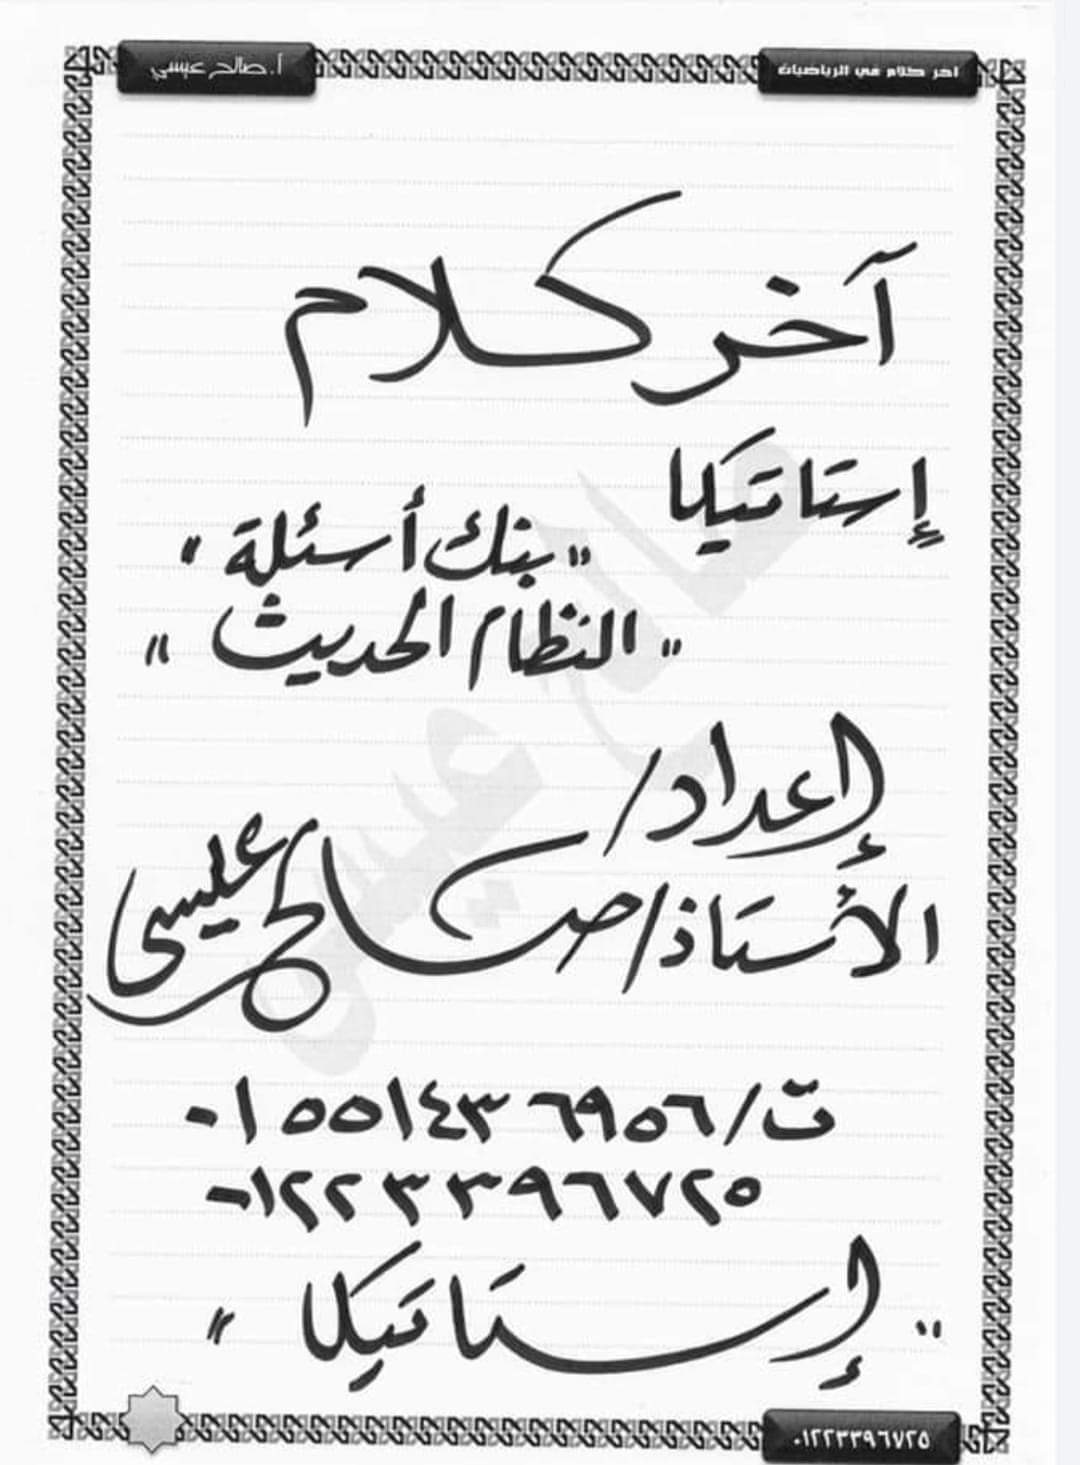 اخر كلام في الرياضيات
أ. صالح عيسي
آخر كلام
إستاتيكا
"بنك أسئلة"
"النظام الحديث"
إعداد/
الأستاذ/ صالح عيسى
ت/ ٠١٥٥١٤٣٦٩٥٦
٠١٢٢٣٣٩٦٧٢٥
"إستاتيكا"
٠١٢٢٣٣٩٦٧٢٥
صالح عيسى